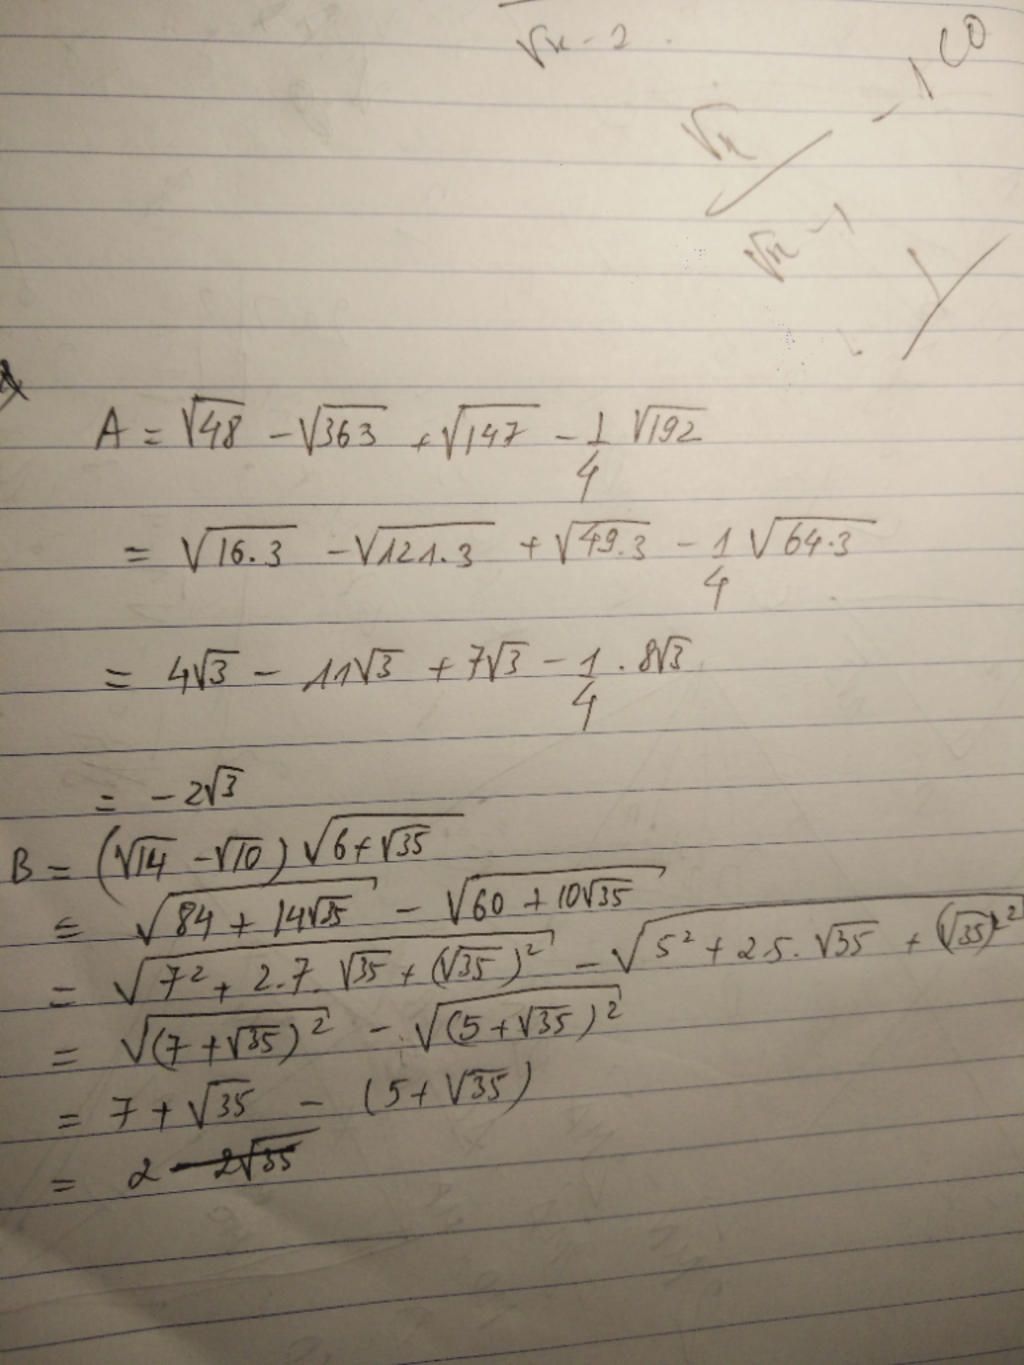 √x - 2
√x / √x - 1 - 1 < 0
A = √48 - √363 + √147 - 1/4 √192
= √16.3 - √121.3 + √49.3 - 1/4 √64.3
= 4√3 - 11√3 + 7√3 - 1/4 . 8√3
= - 2√3
B = (√14 - √10) √6+√35
= √84 + 14√35 - √60 + 10√35
= √7² + 2.7.√35 + (√35)² - √5² + 2.5.√35 + (√35)²
= √(7+√35)² - √(5+√35)²
= 7 + √35 - (5+√35)
= 2 - 2√35